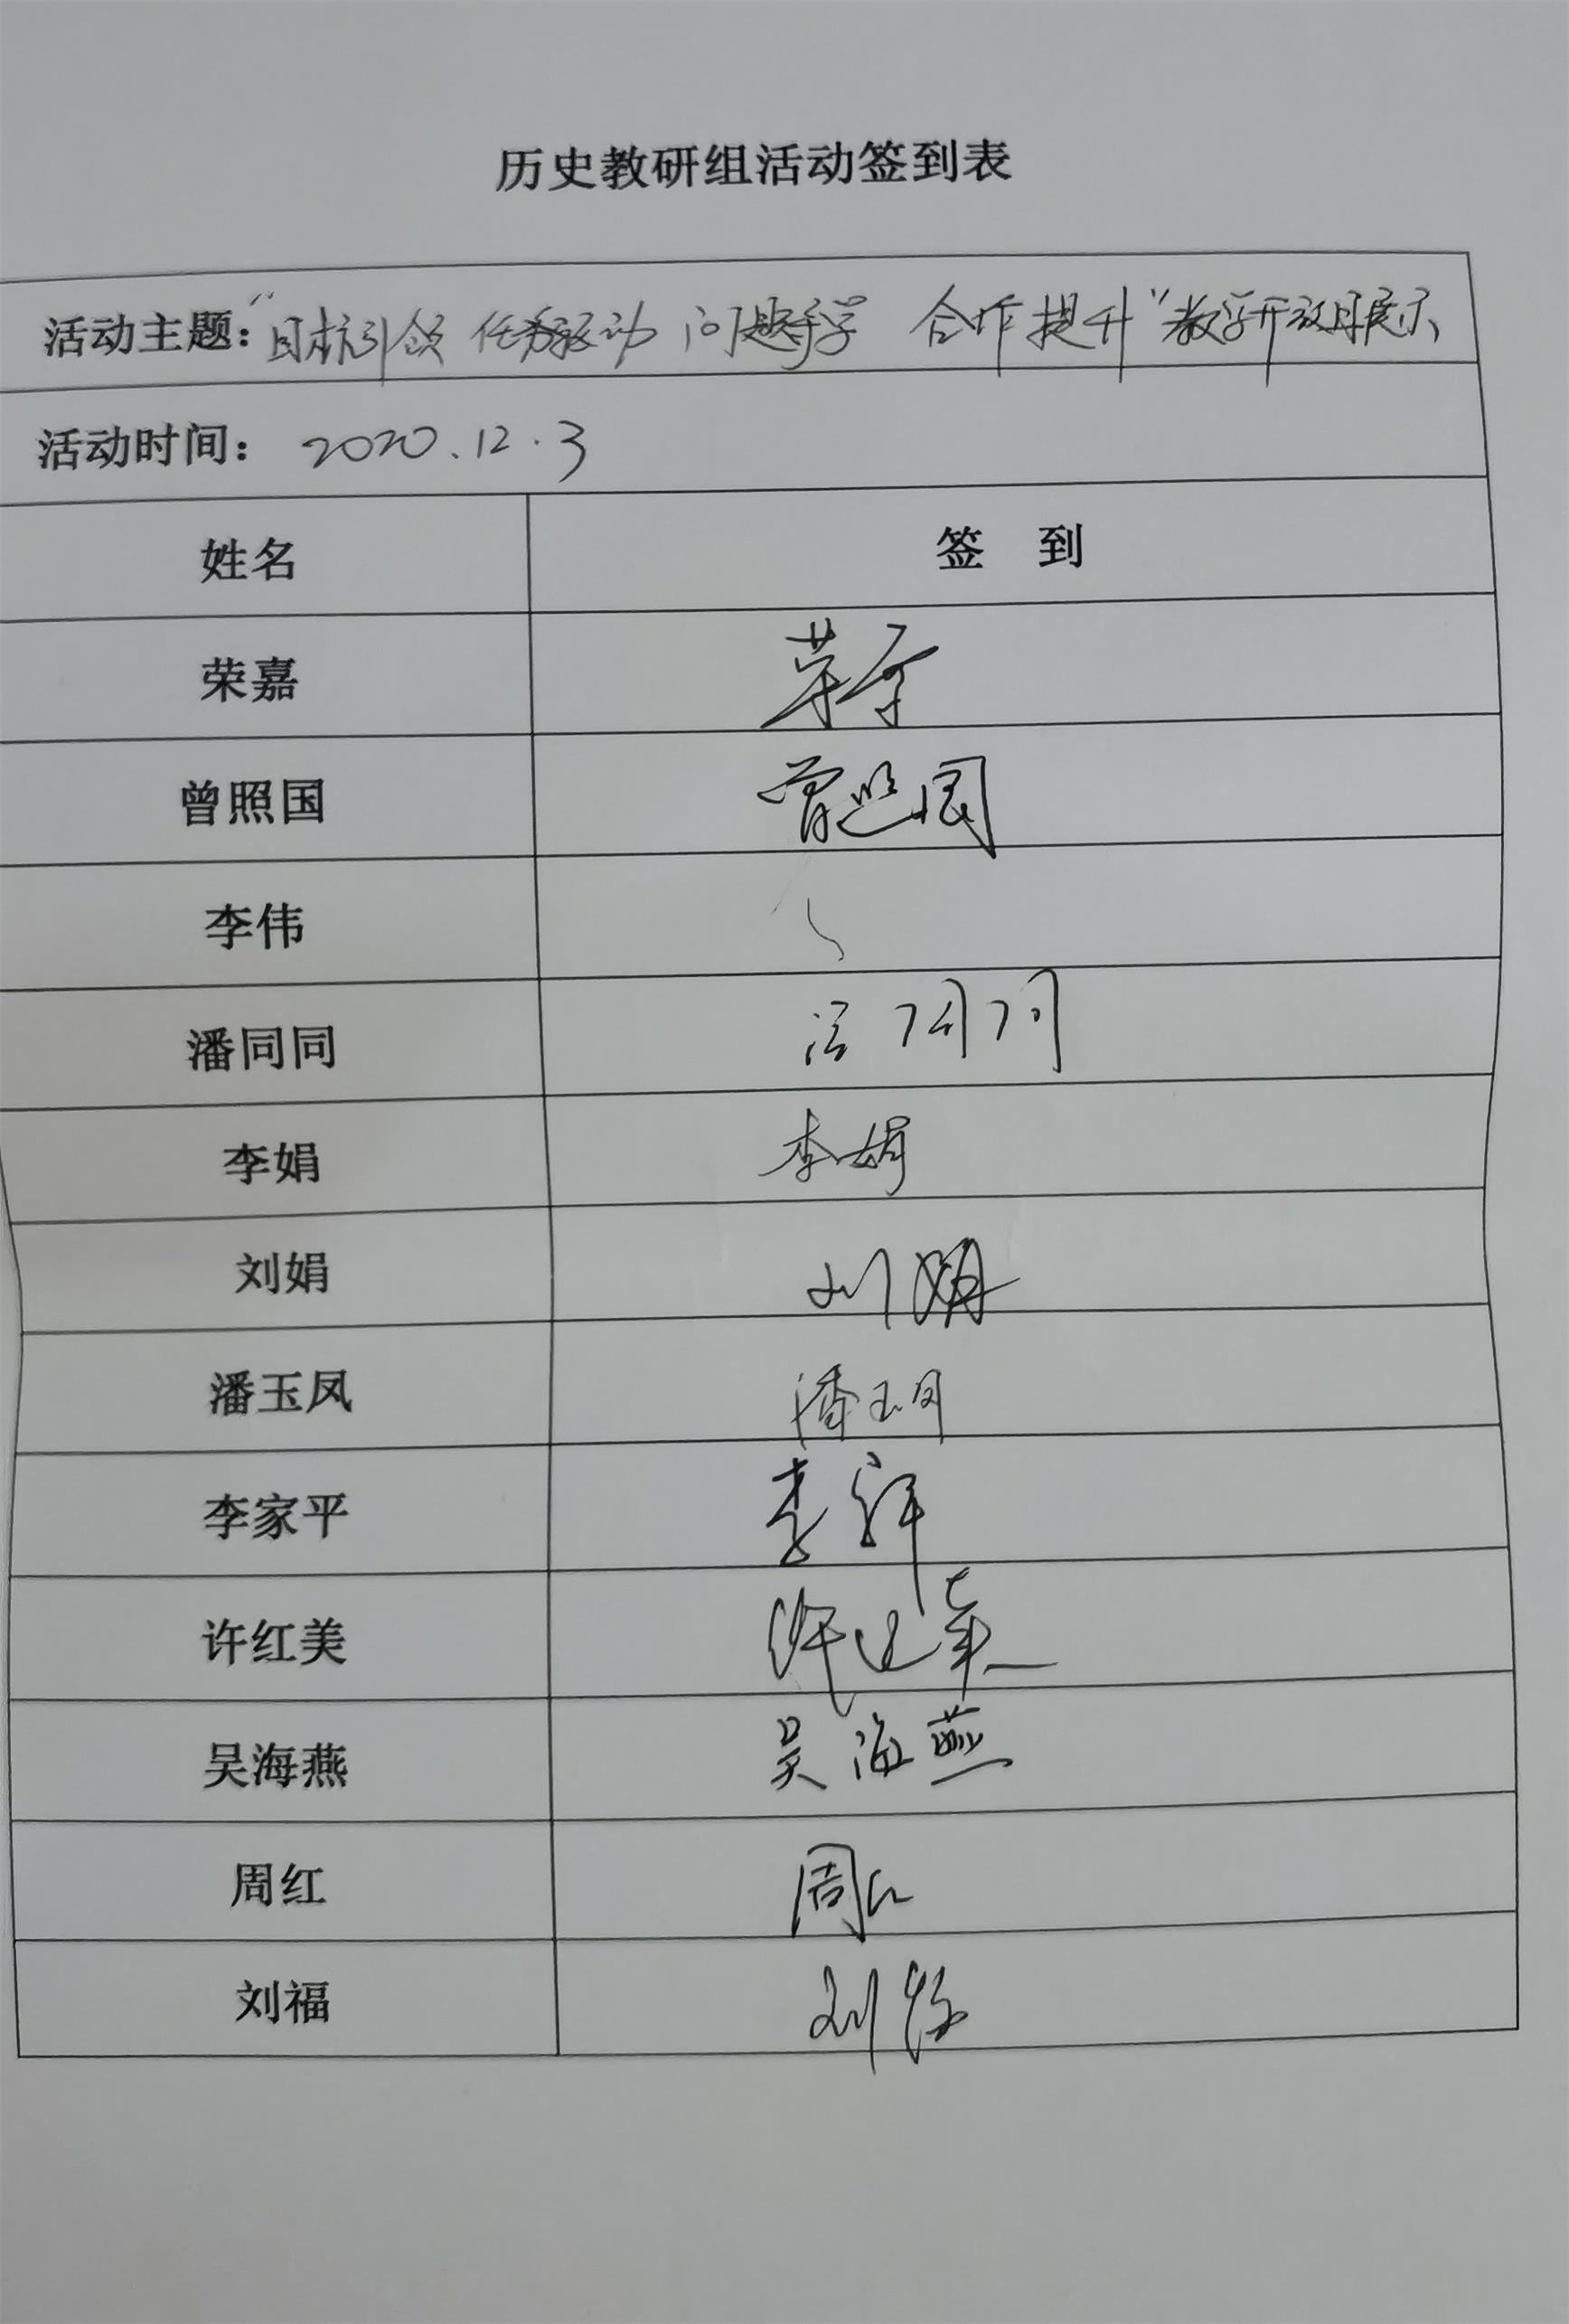 历史教研组活动签到表
活动主题：“目标引领 任务驱动 问题导学 合作提升”教学开放日展示
活动时间： 2020.12.3
姓名 签 到
荣嘉 荣嘉
曾照国 曾照国
李伟
潘同同 潘同同
李娟 李娟
刘娟 刘娟
潘玉凤 潘玉凤
李家平 李家平
许红美 许红美
吴海燕 吴海燕
周红 周红
刘福 刘福